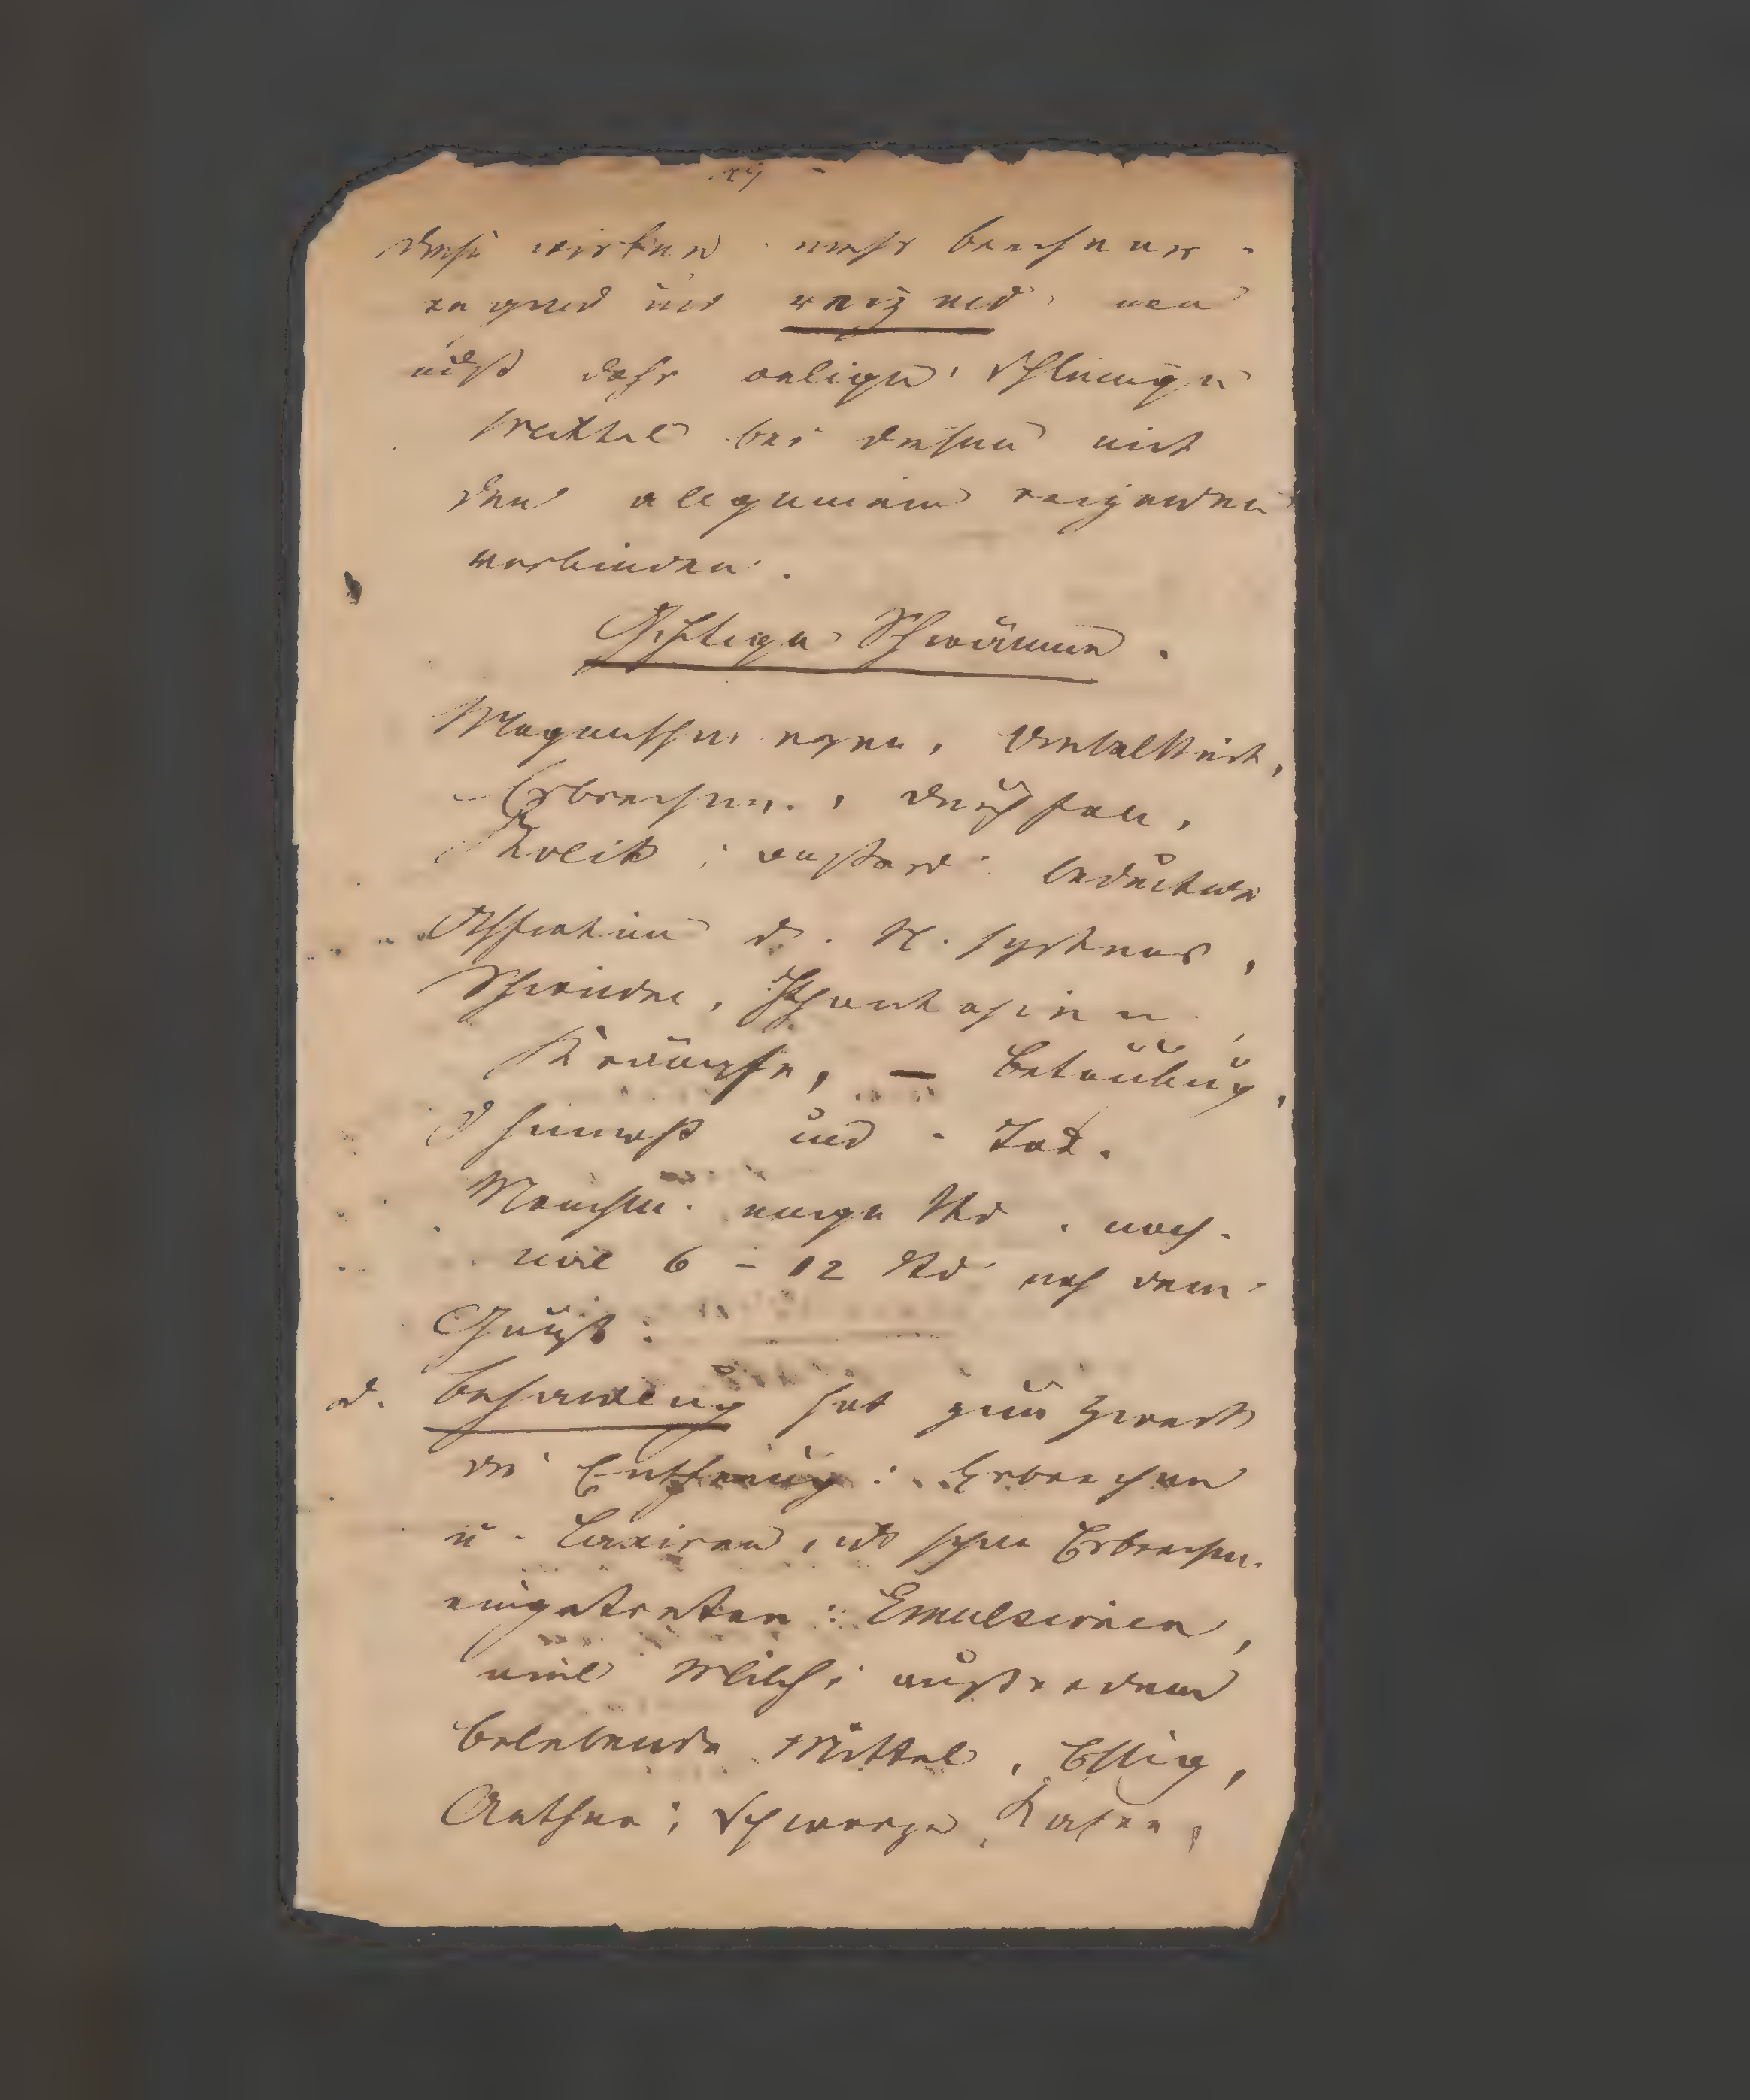 diese wirken mehr brechener-
regend und reizend. man
muß daher oelige, schleimige
Mittel bei diesen mit
den allgemein reizenden
verbinden.
Giftige Schwämme.
Magenschmerzen, Uebelkeit,
Erbrechen, Durchfall,
Kolik; außerd. bedeutende
Affection d. N. systems,
Schwindel, Phantasien,
Krämpfe, – Betäubung,
Ohnmacht und Tod.
Manchm. einige Std. nach.
mal 6 – 12 Std nach dem
Genuß.
d. Behandlung hat zum Zweck
die Entfernung: Erbrechen
u. Laxiren, ist schon Erbrechen
eingetreten: Emulsionen,
viel Milch; außerdem
belebende Mittel, Essig,
Aether; schwarzen Kafee,